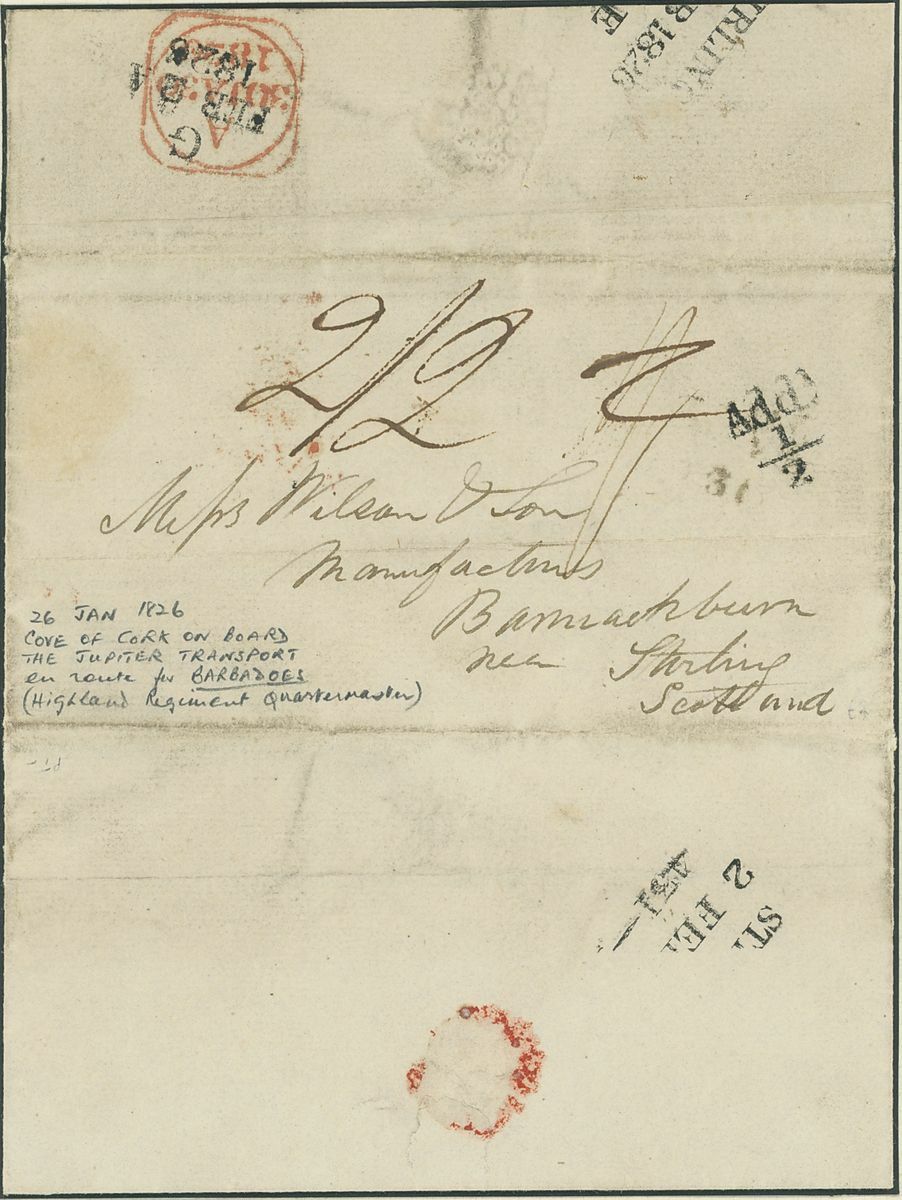 1826
30JA30
A
G
FEB
1826
RLING
B 1826
E
2/2
Addl
1/2
Messrs Wilson & Son
Manufacturers
Bannackburn
near Stirling
Scotland
26 JAN 1826
COVE OF CORK ON BOARD
THE JUPITER TRANSPORT
en route for BARBADOES
(Highland Regiment Quartermaster)
ST
2 FE
431